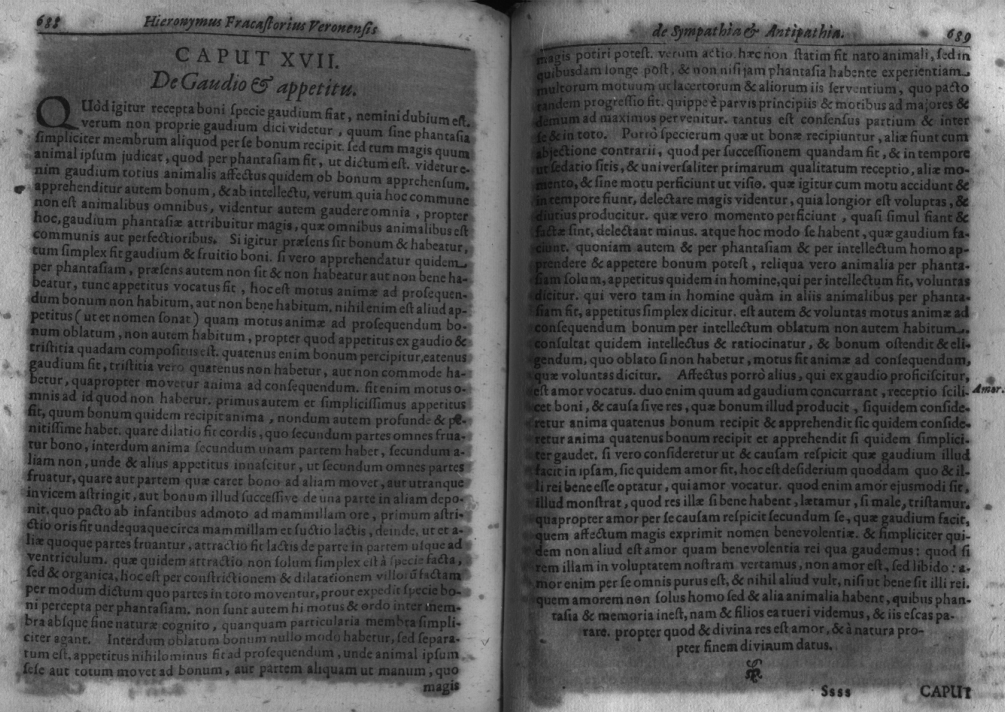 688 Hieronymus Fracastorius Veronensis
CAPUT XVII.
De Gaudio & appetitu.
QUód igitur recepta boni specie gaudium fiat, nemini dubium est.
verum non proprie gaudium dici videtur, quum sine phantasia
simpliciter membrum aliquod per se bonum recipit. sed tum magis quum
animal ipsum judicat, quod per phantasiam fit, ut dictum est. videtur e-
nim gaudium totius animalis affectus quidem ob bonum apprehensum.
apprehenditur autem bonum, & ab intellectu, verum quia hoc commune
non est animalibus omnibus, videntur autem gaudere omnia, propter
hoc, gaudium phantasiæ attribuitur magis, quæ omnibus animalibus est
communis aut perfectioribus. Si igitur præsens sit bonum & habeatur,
tum simplex fit gaudium & fruitio boni. si vero apprehendatur quidem
per phantasiam, præsens autem non sit & non habeatur aut non bene ha-
beatur, tunc appetitus vocatus fit, hoc est motus animæ ad prosequen-
dum bonum non habitum, aut non bene habitum. nihil enim est aliud ap-
petitus (ut et nomen sonat) quam motus animæ ad prosequendum bo-
num oblatum, non autem habitum, propter quod appetitus ex gaudio &
tristitia quadam compositus est. quatenus enim bonum percipitur, eatenus
gaudium fit, tristitia vero quatenus non habetur, aut non commode ha-
betur, quapropter movetur anima ad consequendum. fit enim motus o-
mnis ad id quod non habetur. primus autem et simplicissimus appetitus
fit, quum bonum quidem recipit anima, nondum autem profunde & pe-
nitissime habet. quare dilatio fit cordis, quo secundum partes omnes frua-
tur bono, interdum anima secundum unam partem habet, secundum a-
liam non, unde & alius appetitus innascitur, ut secundum omnes partes
fruatur, quare aut partem quæ caret bono ad aliam movet, aut utranque
invicem astringit, aut bonum illud successive de una parte in aliam depo-
nit. quo pacto ab infantibus admoto ad mammillam ore, primum astri-
ctio oris fit undequaque circa mammillam et suctio lactis, deinde, ut et a-
liæ quoque partes fruantur, attractio fit lactis de parte in partem usque ad
ventriculum. quæ quidem attractio non solum simplex est à specie facta,
sed & organica, hoc est per constrictionem & dilatationem villorū factam
per modum dictum quo partes in toto moventur, prout expedit specie bo-
ni percepta per phantasiam. non sunt autem hi motus & ordo inter mem-
bra absque fine naturæ cognito, quanquam particularia membra simpli-
citer agant. Interdum oblatum bonum nullo modo habetur, sed separa-
tum est, appetitus nihilominus fit ad prosequendum, unde animal ipsum
sese aut totum movet ad bonum, aut partem aliquam ut manum, quo
magis
de Sympathia & Antipathia. 689
magis potiri potest. verum actio hæc non statim fit nato animali, sed in
quibusdam longe post, & non nisi jam phantasia habente experientiam
multorum motuum ut lacertorum & aliorum iis servientium, quo pacto
tandem progressio fit. quippe è parvis principiis & motibus ad majores &
demum ad maximos pervenitur. tantus est consensus partium & inter
se & in toto. Porrò specierum quæ ut bonæ recipiuntur, aliæ fiunt cum
abjectione contrarii, quod per successionem quandam fit, & in tempore
ut sedatio sitis, & universaliter primarum qualitatum receptio, aliæ mo-
mento, & sine motu perficiunt ut visio. quæ igitur cum motu accidunt &
in tempore fiunt, delectare magis videntur, quia longior est voluptas, &
diutius producitur. quæ vero momento perficiunt, quasi simul fiant &
factæ sint, delectant minus. atque hoc modo se habent, quæ gaudium fa-
ciunt. quoniam autem & per phantasiam & per intellectum homo ap-
prendere & appetere bonum potest, reliqua vero animalia per phanta-
siam solum, appetitus quidem in homine, qui per intellectum fit, voluntas
dicitur. qui vero tam in homine quàm in aliis animalibus per phanta-
siam fit, appetitus simplex dicitur. est autem & voluntas motus animæ ad
consequendum bonum per intellectum oblatum non autem habitum.
consultat quidem intellectus & ratiocinatur, & bonum ostendit & eli-
gendum, quo oblato si non habetur, motus fit animæ ad consequendum,
quæ voluntas dicitur. Affectus porrò alius, qui ex gaudio proficiscitur,
est amor vocatus. duo enim quum ad gaudium concurrant, receptio scili-
Amor.
cet boni, & causa sive res, quæ bonum illud producit, siquidem conside-
retur anima quatenus bonum recipit & apprehendit sic quidem conside-
retur anima quatenus bonum recipit et apprehendit si quidem simplici-
ter gaudet, si vero consideretur ut & causam respicit quæ gaudium illud
facit in ipsam, sic quidem amor fit, hoc est desiderium quoddam quo & il-
li rei bene esse optatur, qui amor vocatur. quod enim amor ejusmodi sit,
illud monstrat, quod res illæ si bene habent, lætamur, si male, tristamur.
quapropter amor per se causam respicit secundum se, quæ gaudium facit,
quem affectum magis exprimit nomen benevolentiæ. & simpliciter qui-
dem non aliud est amor quam benevolentia rei qua gaudemus: quod si
rem illam in voluptatem nostram vertamus, non amor est, sed libido: a-
mor enim per se omnis purus est, & nihil aliud vult, nisi ut bene sit illi rei.
quem amorem non solus homo sed & alia animalia habent, quibus phan-
tasia & memoria inest, nam & filios ea tueri videmus, & iis escas pa-
rare. propter quod & divina res est amor, & à natura pro-
pter finem divinum datus.
Ssss CAPUT